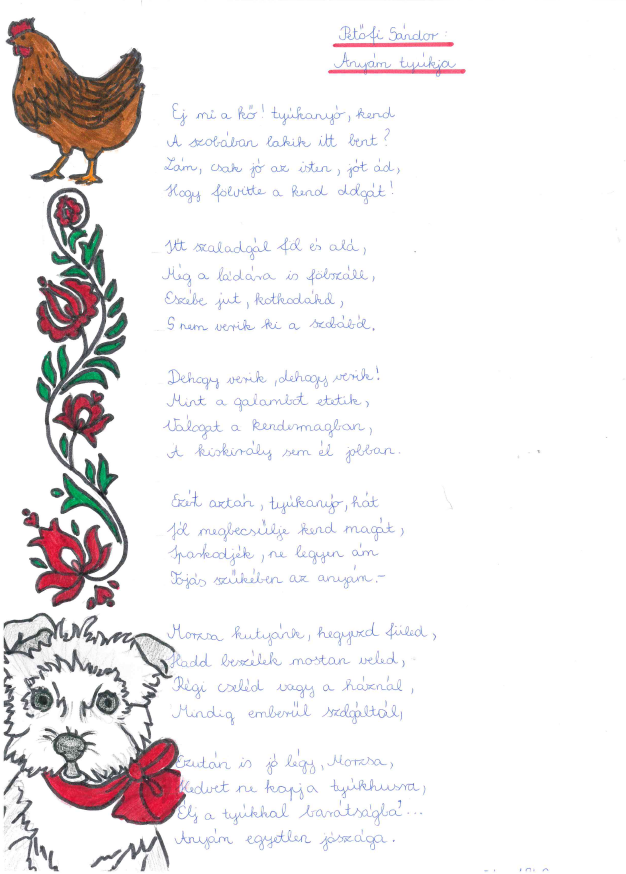 Petőfi Sándor:
Anyám tyúkja
Ej mi a kő! tyúkanyó, kend
A szobában lakik itt bent?
Lám, csak jó az isten, jót ád,
Hogy fölvitte a kend dolgát!
Itt szaladgál föl és alá,
Még a ládára is fölszáll,
Eszébe jut, kotkodákol,
S nem verik ki a szobából.
Dehogy verik, dehogy verik!
Mint a galambot etetik,
Válogat a kendermagban,
A kiskirály sem él jobban.
Ezért aztán, tyúkanyó, hát
Jól megbecsülje kend magát,
Iparkodjék, ne legyen ám
Tojás szűkében az anyám.-
Morzsa kutyánk, hegyezd füled,
Hadd beszélek mostan veled,
Régi cseléd vagy a háznál,
Mindig emberül szolgáltál,
Ezután is jó légy, Morzsa,
Kedvet ne kapj a tyúkhusra,
Élj a tyúkkal barátságba'...
Anyám egyetlen jószága.